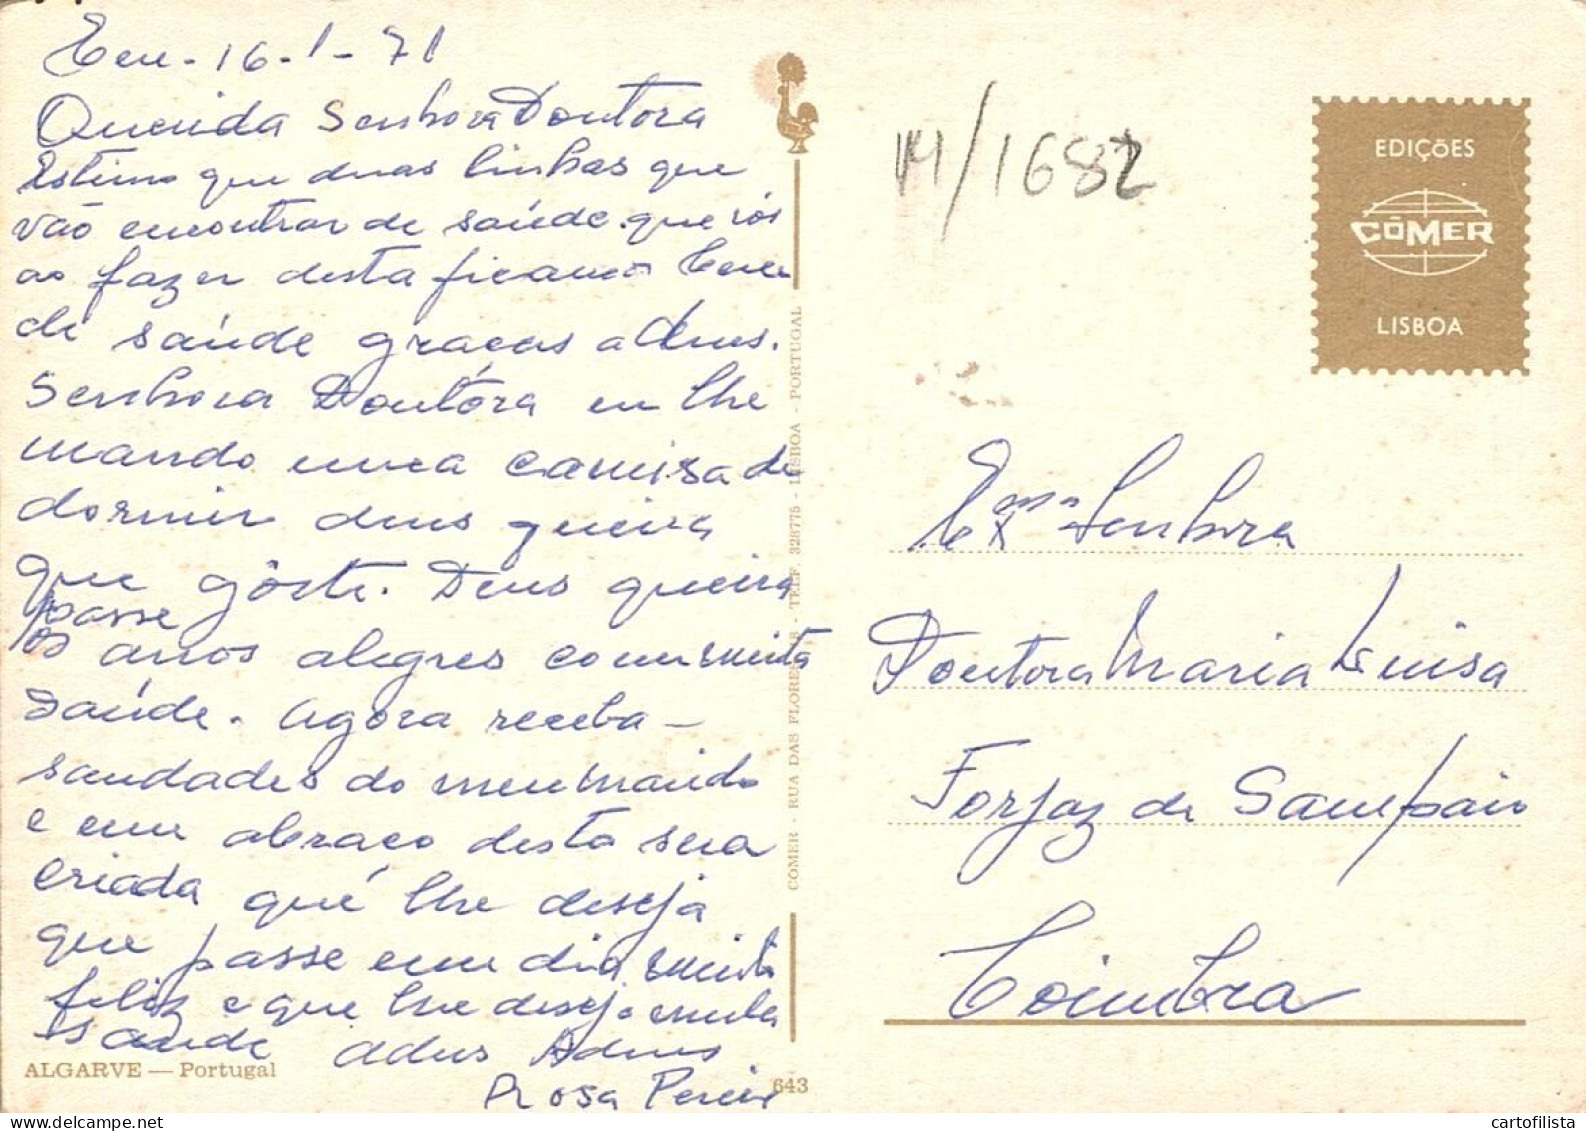 16-1-71
Querida Senhora Doutora
Estimo que duas linhas que
vão encontrar de saúde que nós
ao fazer desta ficamos bem
de saúde graças a deus.
Senhora Doutóra eu lhe
mando uma camisa de
dormir deus queira
que gôste. Deus queira
passe
os anos alegres com muita
saúde. Agora receba
saudades do meu marido
e um abraço desta sua
criada qué lhe deseja
que passe um dia muito
feliz e que lhe deseja muita
saúde adeus Adeus
Rosa Pereira
ALGARVE — Portugal
643
COMER - RUA DAS FLORES - TELF. 328775 - LISBOA - PORTUGAL
1682
EDIÇÕES
CÔMER
LISBOA
Exma Senhora
Doutora Maria Luisa
Forjaz de Sampaio
Coimbra
cartofilista.com